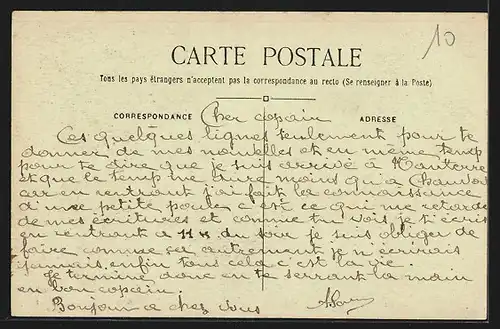 10
CARTE POSTALE
Tous les pays étrangers n'acceptent pas la correspondance au recto (Se renseigner à la Poste)
CORRESPONDANCE
ADRESSE
Cher copain
Ces quelques lignes seulement pour te
donner de mes nouvelles et en même temp
pour te dire que je suis arrivé à
et que le temp me dure moins qu'a
car en rentrant j'ai fait la connaissance
d'une petite poule c'est ce qui me retarde
de mes écritures et comme tu vois je t'écris
en rentrant a 11 h du soir je suis obliger de
faire comme sa autrement je n'écrirais
jamais enfin tous cela c'est la vie.
Je termine donc en te serrant la main
en bon copain.
Bonjour a chez vous